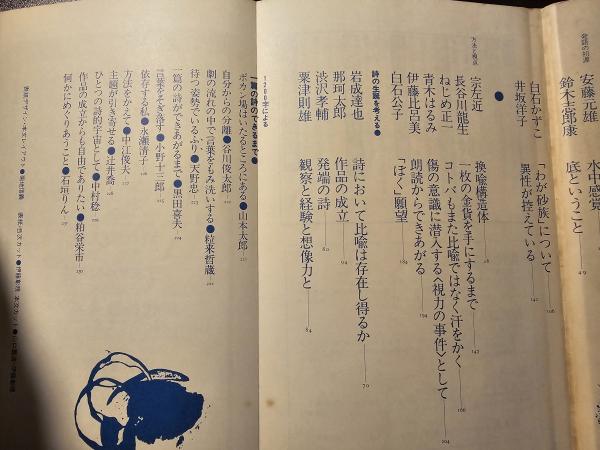 発語の根源
安藤元雄
水中感覚
鈴木志郎康
底ということ
49
白石かずこ
「わが砂族」について
106
井坂洋子
異性が控えている
142
方法と視点
宗左近
換喩構造体
長谷川龍生
一枚の金貨を手にするまで
142
ねじめ正一
コトバもまた比喩ではなく汗をかく
166
青木はるみ
傷の意識に潜入する〈視力の事件〉として
204
伊藤比呂美
朗読からできあがる
194
白石公子
「ぼく」願望
184
詩の生誕を考える●
岩成達也
詩において比喩は存在し得るか
70
那珂太郎
作品の成立
渋沢孝輔
発端の詩
粟津則雄
観察と経験と想像力と
84
一篇の詩のできるまで●
ポカン場はいたるところにある●山本太郎
自分からの分離●谷川俊太郎
劇の流れの中で言葉をもみ洗いする●粒来哲蔵
待つ姿勢でいるふり●天野忠
一篇の詩ができあがるまで●黒田喜夫
言葉をそぎ落す●小野十三郎
依存する私●永瀬清子
方法をかえて●中江俊夫
主題が引き寄せる●辻井喬
ひとつの詩的宇宙として●中村稔
作品の成立からも自由でありたい●粕谷栄市
何かにめぐりあうこと●石垣りん
230